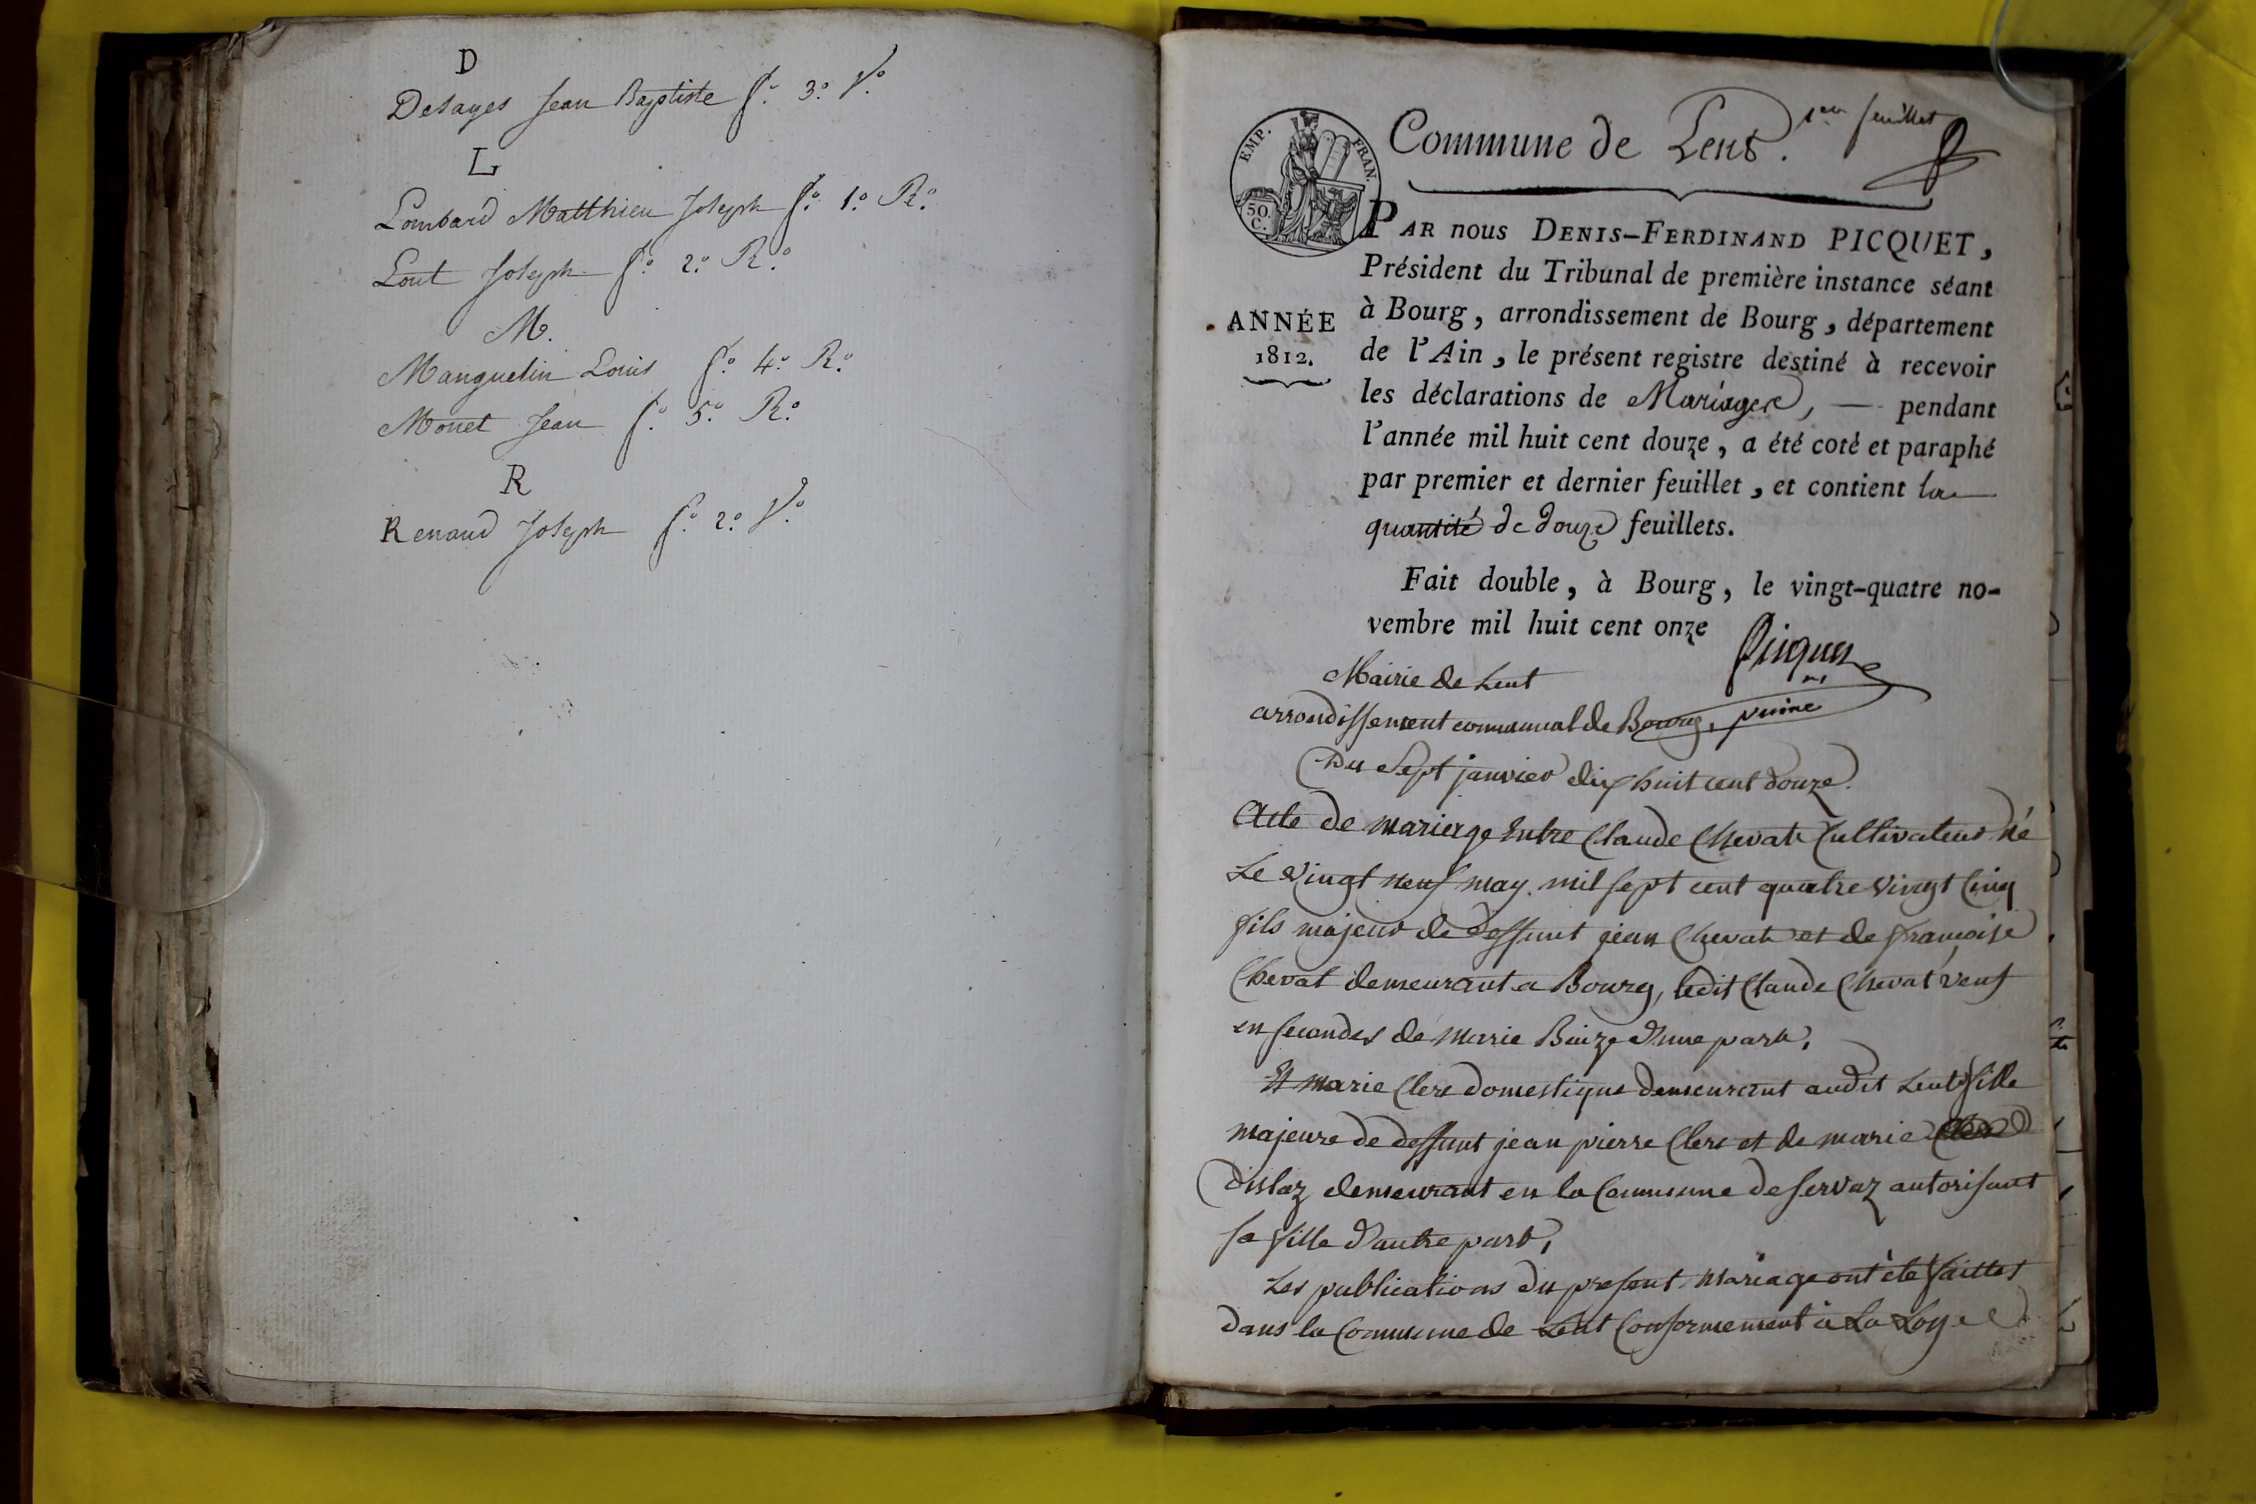 D
Desayes Jean Baptiste f.o 3.o V.o
L
Lombard Matthieu Joseph f.o 1.o R.o
Lout Joseph f.o 2.o R.o
M.
Manguelin Louis f.o 4.o R.o
Monet Jean f.o 5.o R.o
R
Renaud Joseph f.o 2.o V.o
1er feuillet
Commune de Lent.
EMP. FRAN.
50. C.
ANNÉE
1812.
PAR nous DENIS-FERDINAND PICQUET,
Président du Tribunal de première instance séant
à Bourg, arrondissement de Bourg, département
de l'Ain, le présent registre destiné à recevoir
les déclarations de Mariages, — pendant
l'année mil huit cent douze, a été coté et paraphé
par premier et dernier feuillet, et contient la
quantité de douze feuillets.
Fait double, à Bourg, le vingt-quatre no-
vembre mil huit cent onze
Picquet
Mairie de Lent
arrondissement communal de Bourg,
Du Sept janvier dix huit cent douze.
Acte de mariage Entre Claude Chevat Cultivateur né
Le Vingt neuf may mil sept cent quatre vingt Cinq
fils majeur de deffunt jean Chevat et de françoise
Chevat demeurant a Bourg, ledit Claude Chevat veuf
en secondes de Marie d'une part,
Et marie Clerc domestique demeurant audit Lent fille
majeure de deffunt jean pierre Clerc et de marie
demeurant en la Commune de servaz autorisant
sa fille d'autre part,
Les publications du present mariage ont été faittes
dans la Commune de Lent Conformement à La Loye